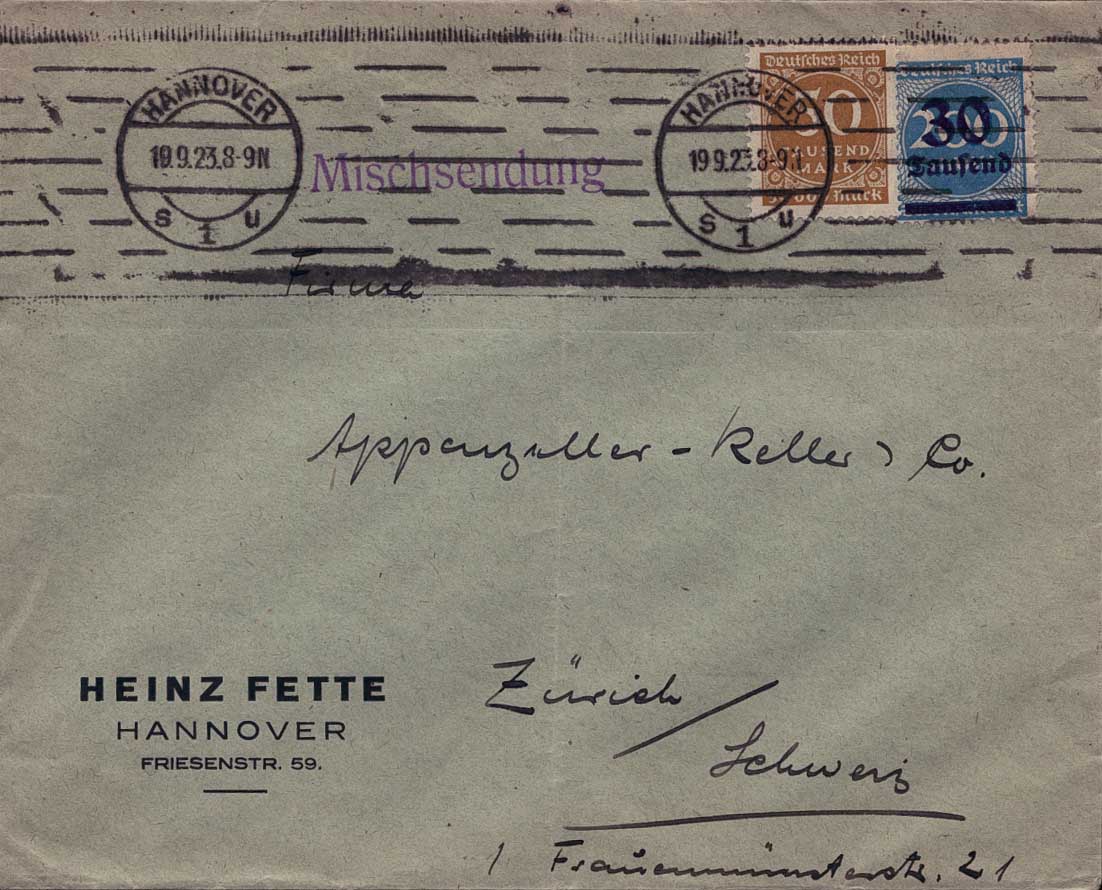 HANNOVER
19.9.23.8-9N
S 1 u
Mischsendung
HANNOVER
19.9.23.8-9N
S 1 u
Deutsches Reich
50
TAUSEND
MARK
Deutsches Reich
200
30
Tausend
Firma
Appenzeller-Keller & Co.
HEINZ FETTE
HANNOVER
FRIESENSTR. 59.
Zürich/
Schweiz
Fraumünsterstr. 21